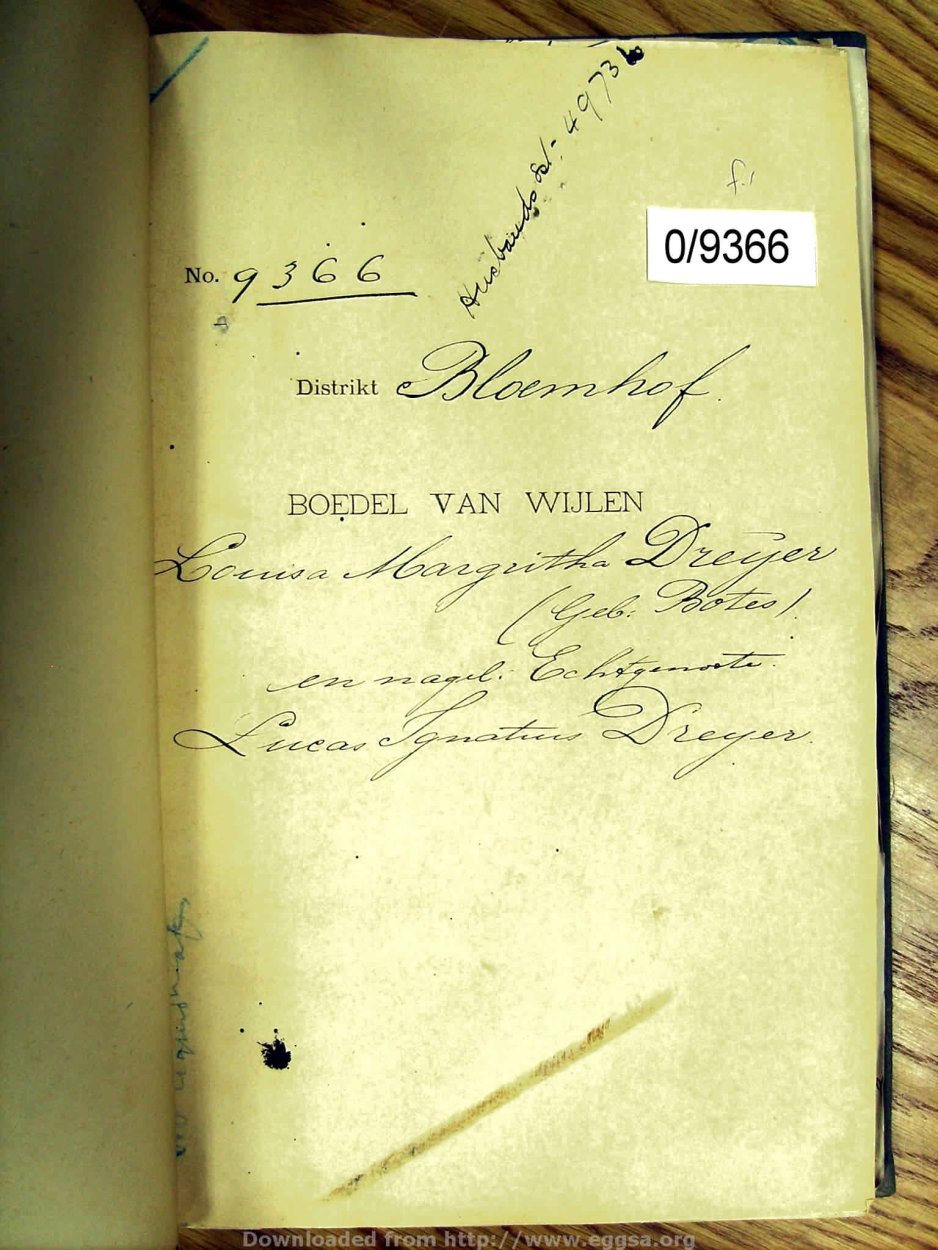 Husbands est: 49736
f.
0/9366
No. 9366
Distrikt Bloemhof.
BOEDEL VAN WIJLEN
Louisa Margritha Dreyer
(Geb: Botes).
en nagel: Echtgenoote.
Lucas Ignatius Dreyer.
Downloaded from http://www.eggsa.org